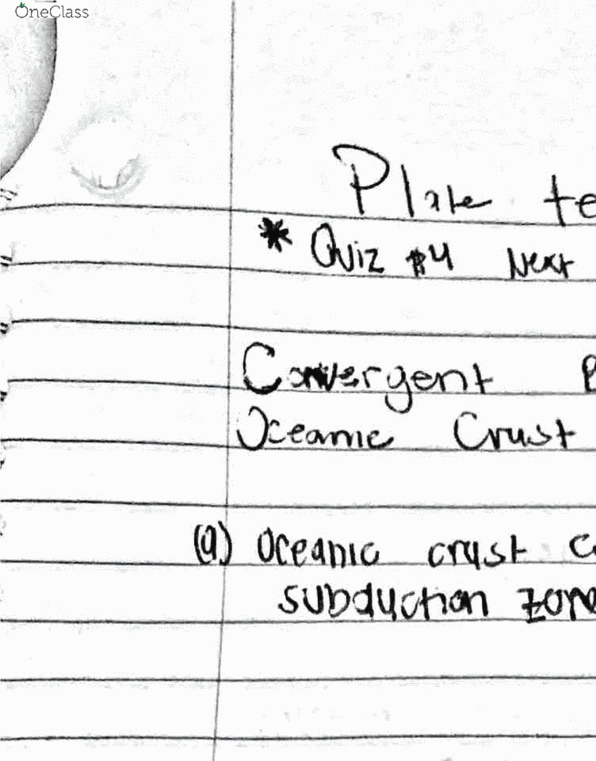 OneClass
Plate te
* Quiz #4 Next
Convergent B
Oceanic Crust
(a) Oceanic crust c
subduction zone